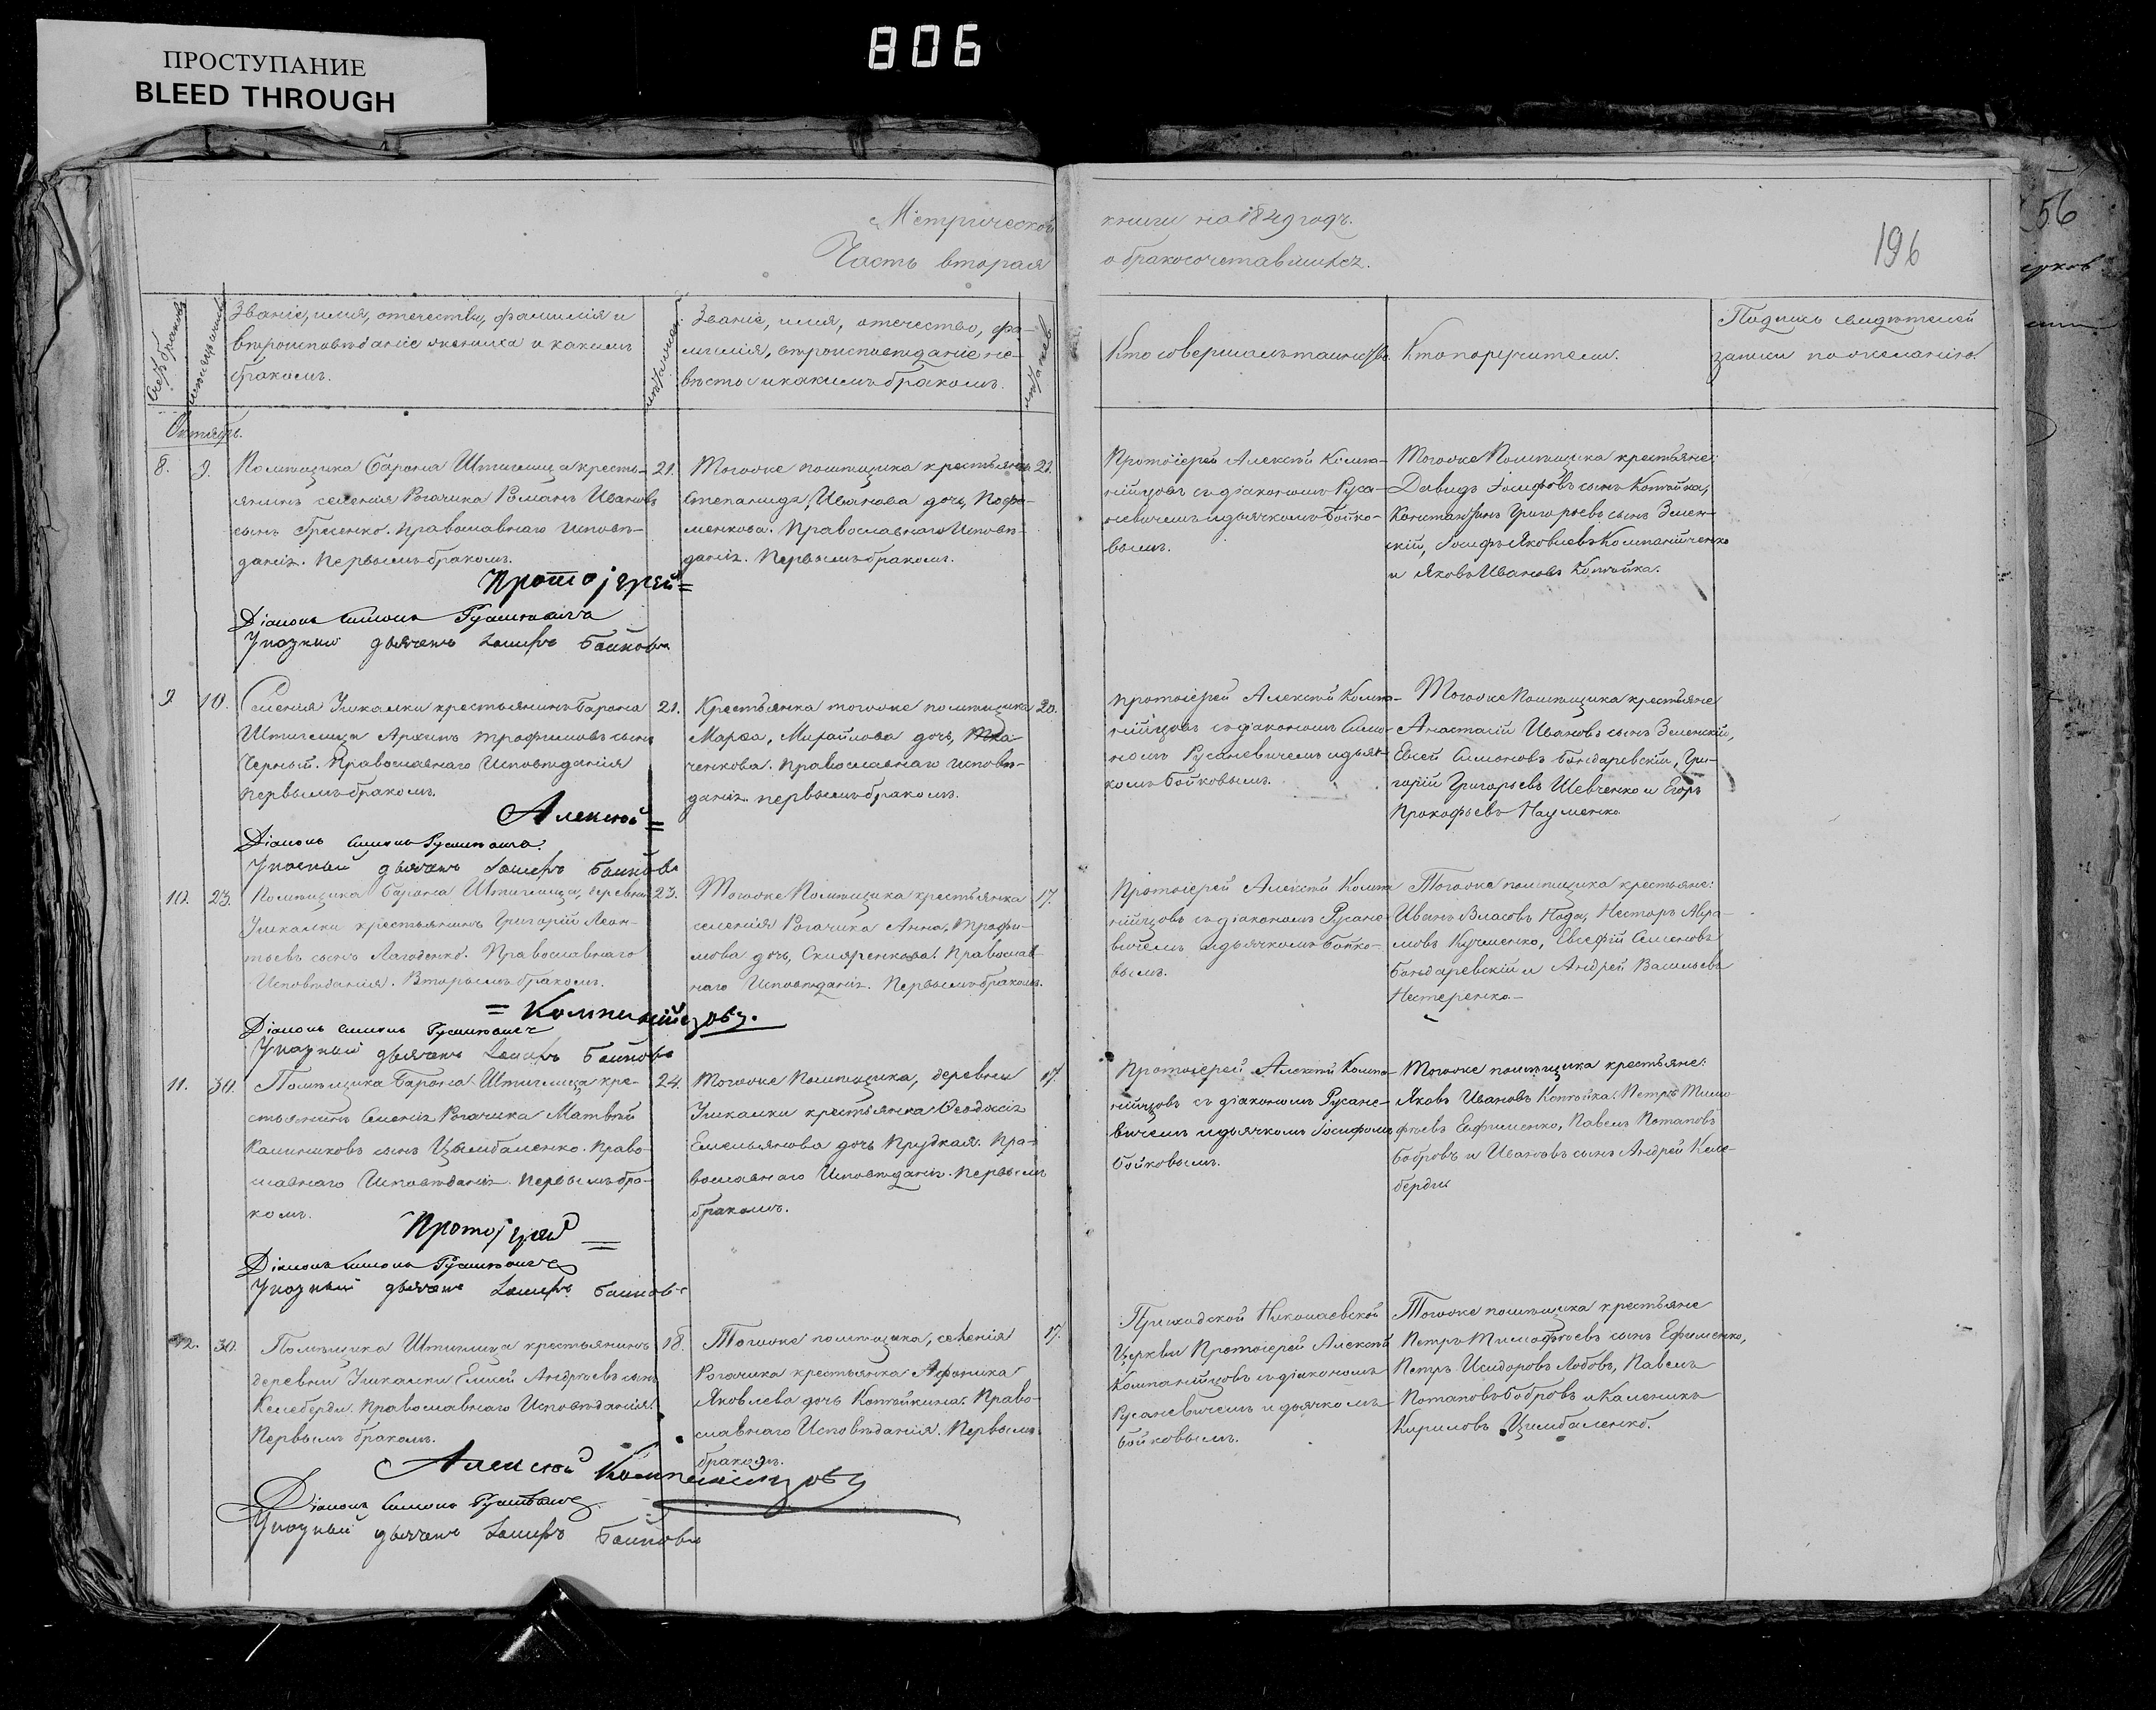 ПРОСТУПАНИЕ
BLEED THROUGH
806
Метрической
Часть вторая
книги на 1849 годъ.
о бракосочетавшихся.
196
56
Счетъ браковъ
Званіе, имя, отечество, фамилія и
вѣроисповѣданіе жениха и какимъ
бракомъ.
Званіе, имя, отечество, фа-
милія, вѣроисповѣданіе не-
вѣсты и какимъ бракомъ.
Кто совершалъ таинство.
Кто поручители.
Подпись свидѣтелей
записи по желанію.
Октябрь.
8. 9.
Помѣщика Барона Штиглица кресть-
янинъ селенія Рогачика Романъ Ивановъ
сынъ Гресенко. Православнаго Исповѣ-
данія. Первымъ бракомъ.
21.
Тогоже помѣщика крестьянка
Степанида, Иванова дочь,
менкова. Православнаго Исповѣ-
данія. Первымъ бракомъ.
21.
Протоіерей Алексѣй Компа-
нійцовъ съ діакономъ Руса-
невичемъ и дьячкомъ Бойко-
вымъ.
Тогоже Помѣщика крестьяне:
Давидъ Іосифовъ сынъ Коптѣйка,
Константинъ Григорьевъ сынъ Зелен-
скій, Іосифъ Яковлевъ Компанійченко
и Яковъ Ивановъ Коптѣйка.
Протоіерей=
Діаконъ Симонъ Русаневичъ
Указный дьячекъ Іосифъ Бойковъ
9. 10.
Селенія Ушкалки крестьянинъ Барона
Штиглица Архипъ Трофимовъ сынъ
Черный. Православнаго Исповѣданія
первымъ бракомъ.
21.
Крестьянка тогоже помѣщика
Марѳа, Михайлова дочь, Тка-
ченкова. Православнаго исповѣ-
данія. первымъ бракомъ.
20.
Протоіерей Алексѣй Компа-
нійцовъ съ діакономъ Симо-
номъ Русаневичемъ и дьяч-
комъ Бойковымъ.
Тогоже Помѣщика крестьяне
Анастасій Ивановъ сынъ Зеленскій,
Евсей Симоновъ Бондаревскій, Гри-
горій Григорьевъ Шевченко и Егоръ
Прокофьевъ Науменко
Алексѣй=
Діаконъ Симонъ Русаневичъ.
Указный дьячекъ Іосифъ Бойковъ
10. 23.
Помѣщика Барона Штиглица, деревни
Ушкалки крестьянинъ Григорій Леон-
тьевъ сынъ Лагоденко. Православнаго
Исповѣданія. Вторымъ бракомъ.
23.
Тогоже Помѣщика крестьянка
селенія Рогачика Анна, Трофи-
мова дочь, Скляренкова. Православ-
наго Исповѣданія. Первымъ бракомъ.
17.
Протоіерей Алексѣй Компа
нійцовъ съ діакономъ Русане-
вичемъ и дьячкомъ Бойко-
вымъ.
Тогоже помѣщика крестьяне:
Иванъ Власовъ Нода, Несторъ Авра-
мовъ Кучменко, Симоновъ
Бондаревскій и Андрей Васильевъ
Нестеренко.
= Компанійцовъ.
Діаконъ Симонъ Русаневичъ
Указный дьячекъ Іосифъ Бойковъ
11. 30.
Помѣщика Барона Штиглица кре-
стьянинъ Селенія Рогачика Матвѣй
Калинниковъ сынъ Цымбаленко. Право-
славнаго Исповѣданія. Первымъ бра-
комъ.
24.
Тогоже Помѣщика, деревни
Ушкалки крестьянка Ѳеодосія
Емельянова дочь Прудкая. Пра-
вославнаго Исповѣданія. Первымъ
бракомъ.
17.
Протоіерей Алексѣй Компа-
нійцовъ съ діакономъ Русане-
вичемъ и дьячкомъ Іосифомъ
Бойковымъ.
Тогоже помѣщика крестьяне:
Яковъ Ивановъ Коптѣйка, Петръ Тимо-
фѣевъ Ефименко, Павелъ Потаповъ
Бобровъ и Ивановъ сынъ Андрей Келе-
берды
Протоіерей=
Діаконъ Симонъ Русаневичъ
Указный дьячекъ Іосифъ Бойковъ
12. 30.
Помѣщика Штиглица крестьянинъ
деревни Ушкалки Елисей Андреевъ сынъ
Келеберды. Православнаго Исповѣданія.
Первымъ бракомъ.
18.
Тогоже помѣщика, селенія
Рогачика крестьянка Афимика
Яковлева дочь Коптѣйкина. Право-
славнаго Исповѣданія. Первымъ
бракомъ.
17.
Приходской Николаевской
Церкви Протоіерей Алексѣй
Компанійцовъ съ діакономъ
Русаневичемъ и дьячкомъ
Бойковымъ.
Тогоже помѣщика крестьяне
Петръ Тимофѣевъ сынъ Ефименко,
Петръ Исидоровъ Лобовъ, Павелъ
Потаповъ Бобровъ и Каленикъ
Кириловъ Цимбаленко.
Алексѣй Компанійцовъ
Діаконъ Симонъ Русаневичъ.
Указный дьячекъ Іосифъ Бойковъ